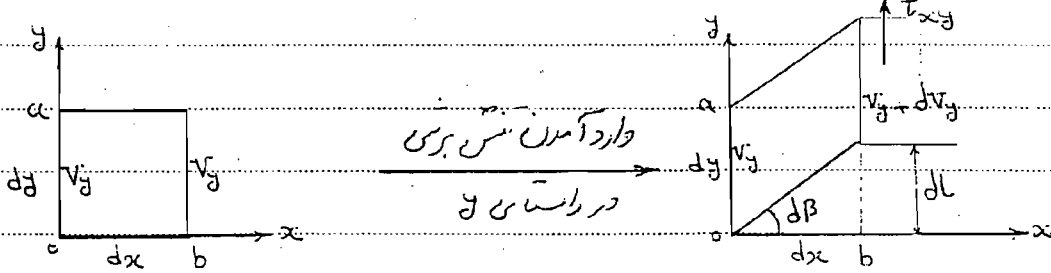 y
a
dy
Vy
Vy
o
dx
b
x
وارد آمدن تنش برشی
در راستای y
τxy
y
a
Vy + dVy
dy
Vy
dβ
dL
o
dx
b
x